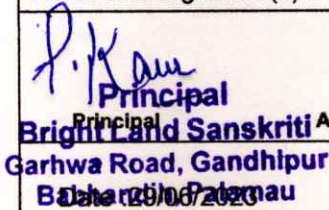 P. Kaur
Principal
Principal
Bright Land Sanskriti A
Garhwa Road, Gandhipur
Palamau
Date: 29/06/2023